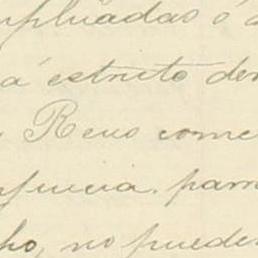 mpliadas ó a
a estricto der
Reus come
nfuria. parr
ho, no pueder